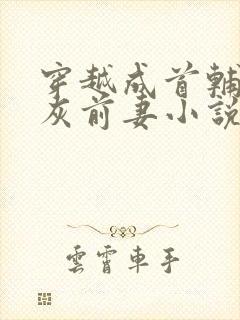 穿越成首輔
灰前妻小說
雲霄車手